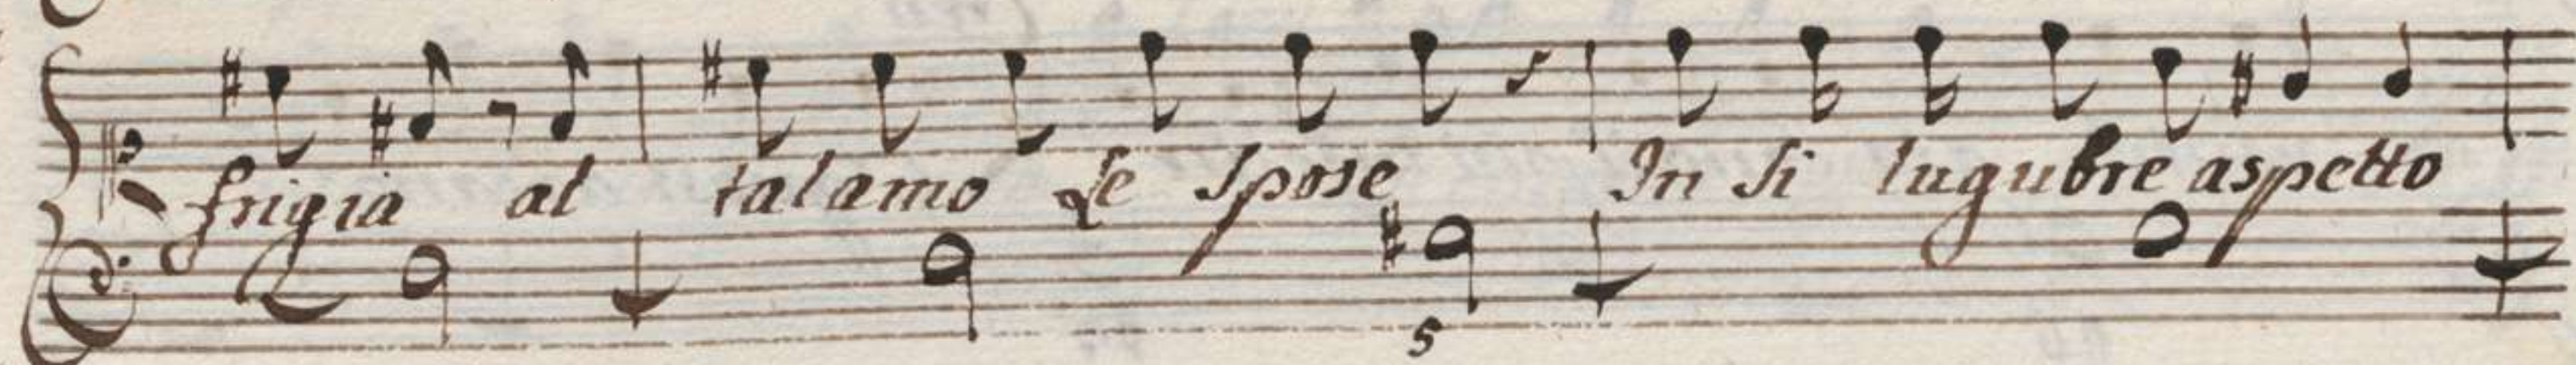 frigia al talamo Le Spose In si lugubre aspetto
5